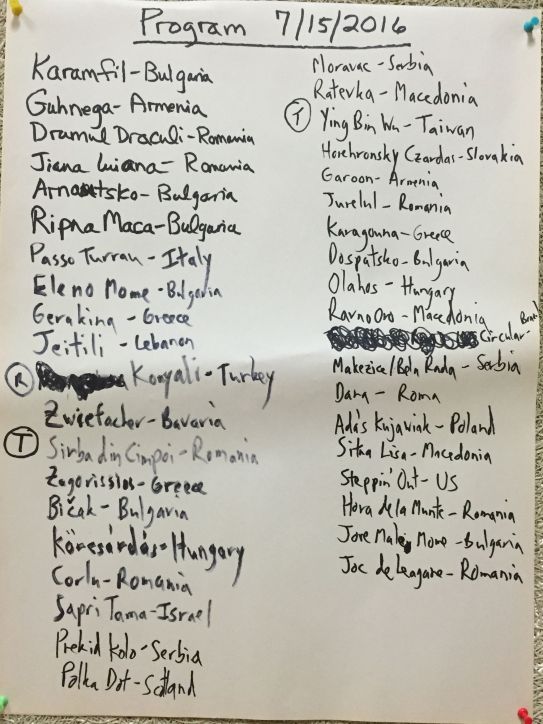 Program 7/15/2016
Karamfil - Bulgaria
Guhnega - Armenia
Dramul Draculi - Romania
Jiana Luiana - Romania
Arnautsko - Bulgaria
Ripna Maca - Bulgaria
Passo Turrau - Italy
Eleno Mome - Bulgaria
Gerakina - Greece
Jeitili - Lebanon
R Konyali - Turkey
Zwiefacher - Bavaria
T Sirba din Cimpoi - Romania
Zagorissios - Greece
Bičak - Bulgaria
Köncsárdás - Hungary
Corlu - Romania
Sapri Tama - Israel
Prekid Kolo - Serbia
Polka Dot - Scotland
Moravac - Serbia
Ratevka - Macedonia
T Ying Bin Wu - Taiwan
Horehronsky Czardas - Slovakia
Garoon - Armenia
Jurelul - Romania
Karagouna - Greece
Dospatsko - Bulgaria
Olahos - Hungary
Ravno Oro - Macedonia
Circular -
Makezice/Bela Rada - Serbia
Dana - Roma
Adás Kujawiak - Poland
Sitna Lisa - Macedonia
Steppin' Out - US
Hora de la Munte - Romania
Jove Male Mome - Bulgaria
Joc de Leagane - Romania